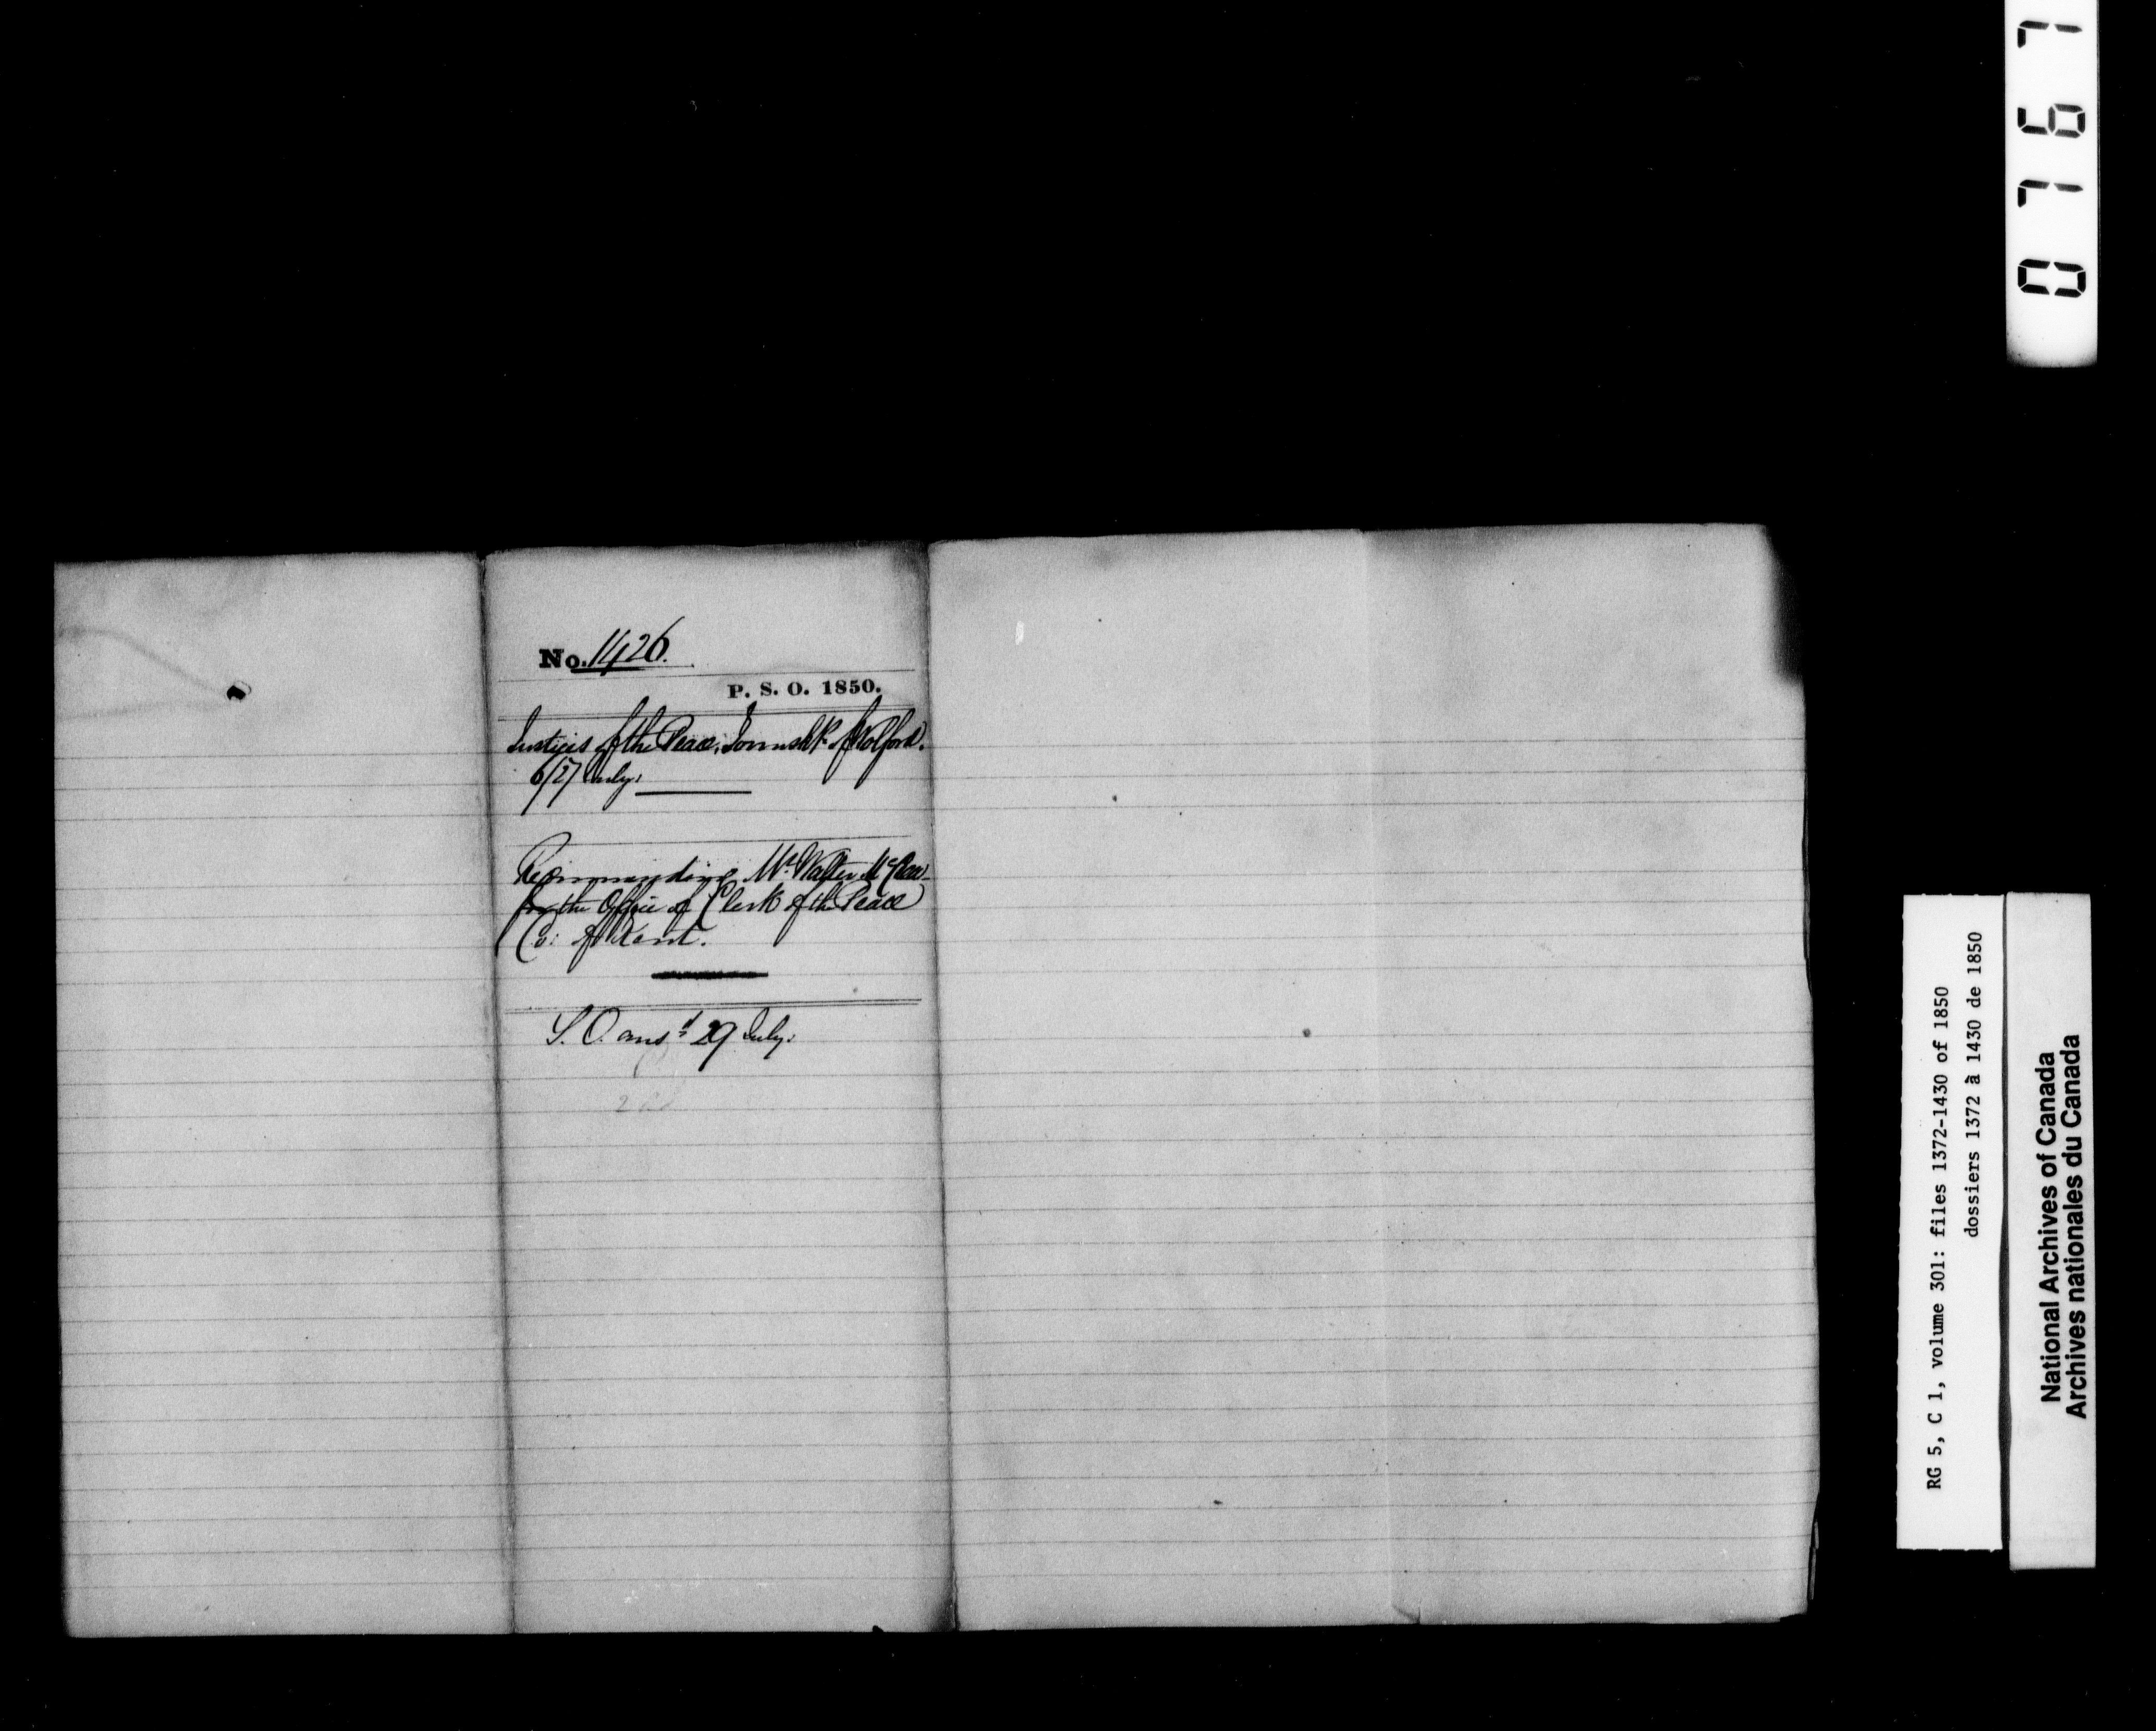 0767
No. 1426.
P. S. O. 1850.
Justices of the Peace, Townshp. of Wolford.
6/27 July.
Recommending Mr. Walter
for the Office of Clerk of the Peace
Co: of Kent.
L. O. ansd. 29 July.
RG 5, C 1, volume 301: files 1372-1430 of 1850
dossiers 1372 à 1430 de 1850
National Archives of Canada
Archives nationales du Canada